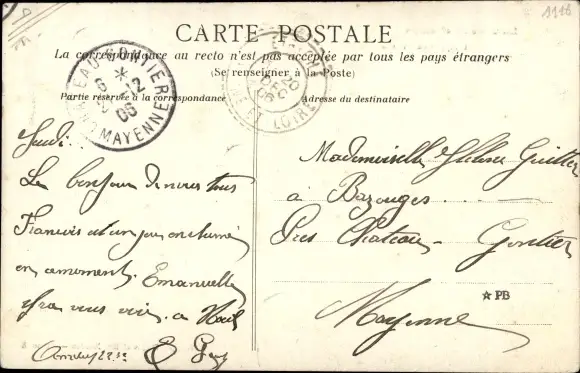 1116
CARTE POSTALE
La correspondance au recto n'est pas acceptée par tous les pays étrangers
(Se renseigner à la Poste)
Partie réservée à la correspondance
Adresse du destinataire
CHATEAU-GONTIER
MAYENNE
12
06
20
DEC
06
ET LOIRE
Jeudi.
Le bonjour de nous tous
Francois est un peu enrhumé
en ce moment. Emanuelle
ira vous voir. a Noël
E
Mademoiselle
à Bazouges
Près Château-Gontier
Mayenne
☆ PB